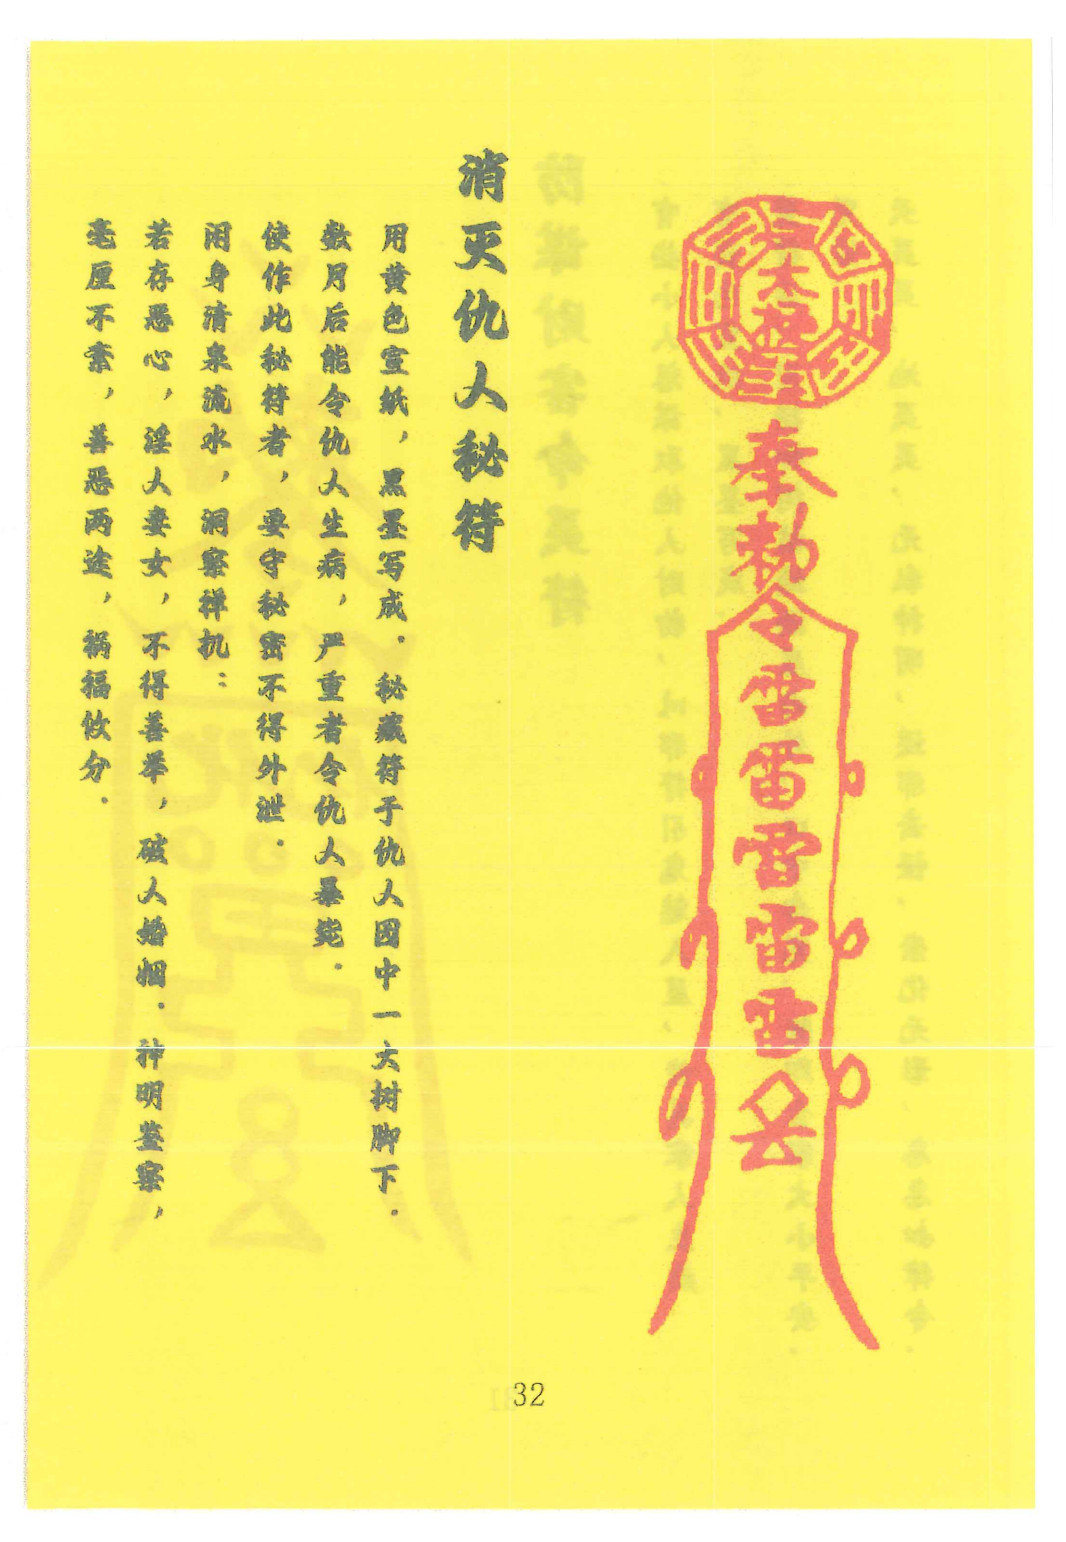 太极
奉
勅
令
雷
雷
雷
雷
雷
消灭仇人秘符
用黄色宣纸，黑墨写成。秘藏符于仇人园中一大树脚下。
数月后能令仇人生病，严重者令仇人暴毙。
使作此秘符者，要守秘密不得外泄。
闭身清泉流水，洞察禅机：
若存恶心，淫人妻女，不得善举，破人婚姻。神明鉴察，
毫厘不紊，善恶两途，祸福攸分。
32